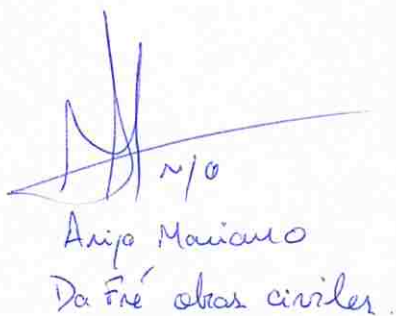 N/O
Arijo Mariano
Da Fré obras civiles.